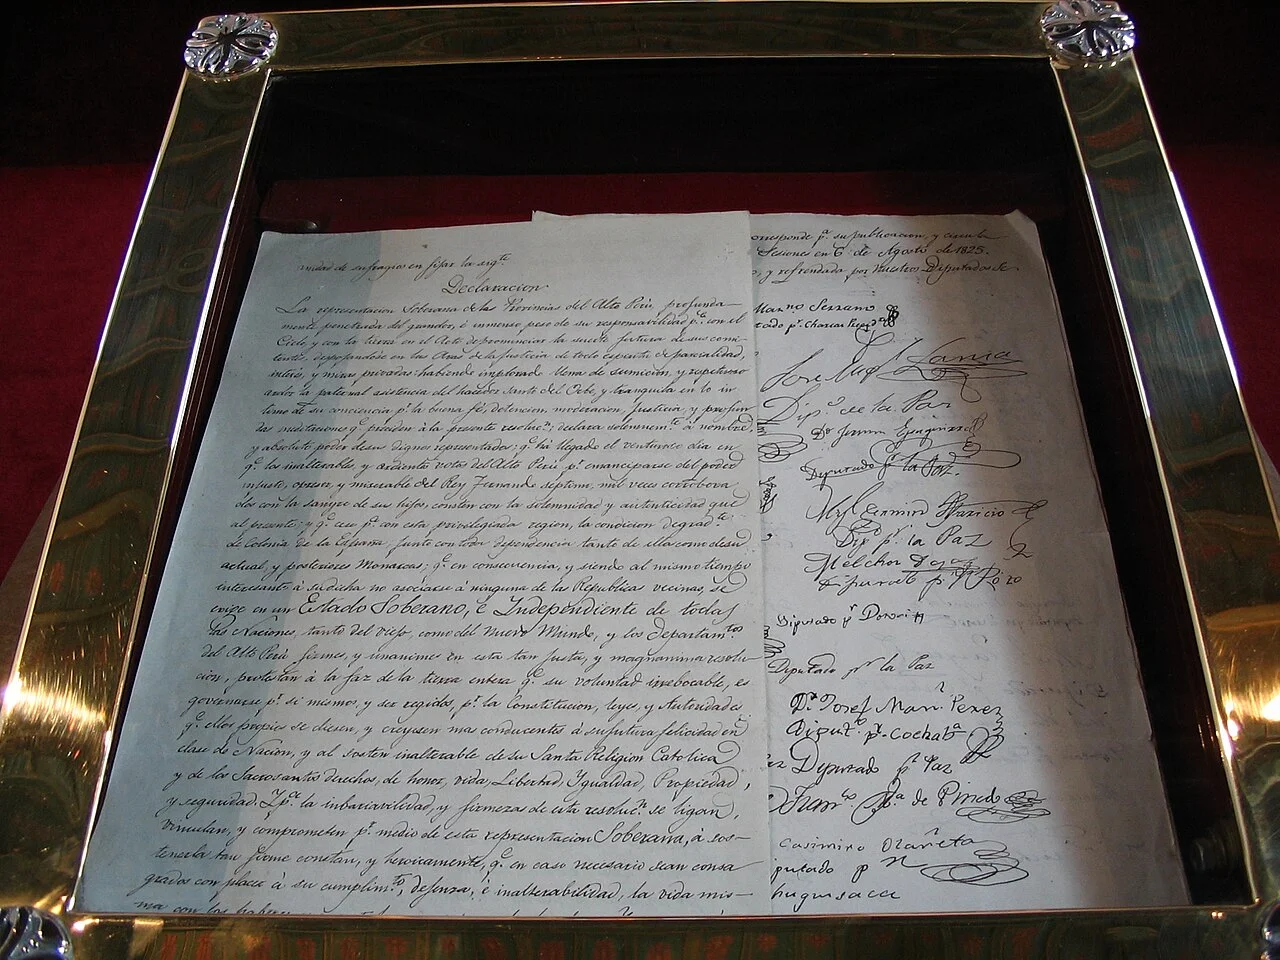 nidad de sufragios en fijar la sigte.
Declaracion
La representacion Soberana de las Provincias del Alto Perú, profunda-
mente penetrada del grandor, é inmenso peso de su responsabilidad pa. con el
Cielo, y con la tierra en el Acto de pronunciar la suerte futura de sus comi-
tentes, despojandose en las Aras de la Justicia de todo espiritu de parcialidad,
interés, y miras privadas: habiendo implorado llena de sumicion, y respetuoso
ardor la paternal asistencia del hacedor Santo del Orbe, y tranquila en lo in-
timo de su conciencia pr. la buena fé, detencion, moderacion, Justicia, y profun-
das meditaciones qe. preciden á la presente resolucn., declara solemnemte. á nombre,
y absoluto poder de sus dignos representados: qe. há llegado el venturoso dia en
qe. los inalterables, y ardientes votos del Alto Perú pr. emanciparse del poder
injusto, opresor, y miserable del Rey Fernando septimo, mil veces corrobora-
dos con la sangre de sus hijos, consten con la solemnidad y autenticidad que
al presente; y qe. cese pa. con esta privilegiada region, la condicion degradte.
de colonia de la España, junto con toda dependencia tanto de ella como de su
actual, y posteriores Monarcas: qe. en consecuencia, y siendo al mismo tiempo
interesante á su dicha no asociarse á ninguna de las Republicas vecinas, se
erije en un Estado Soberano, é Independiente de todas
las Naciones, tanto del viejo, como del Nuevo Mundo, y los Departamtos.
del Alto Perú firmes, y unanimes en esta tan justa, y magnanima resolu-
ción, protestan á la faz de la tierra entera qe. su voluntad irrebocable, es
governarse pr. si mismos, y ser regidos pr. la Constitucion, leyes, y Autoridades
qe. ellos propios se diesen, y creyesen mas conducentes á su futura felicidad en
clase de Nacion, y al sosten inalterable de su Santa Religion Catolica
y de los Sacrosantos derechos, de honor, vida, Libertad, Igualdad, Propiedad,
y seguridad. Y pa. la inbariavilidad, y firmezas de esta resolucn. se ligan,
vinculan, y comprometen pr. medio de esta representacion Soberana, á sos-
tenerla tan firme constan, y heroicamente, qe. en caso necesario sean consa-
grados con placer á su cumplimto., defenza, é inalterabilidad, la vida mis-
ma con los haberes
orresponde pa. su publicacion, y circula
Sesiones en 6 de Agosto de 1825.
, y refrendada por Nuestros Diputados Se
Marno. Serrano
tado pr. Charcas
José Migl. Lanza
Dipo. de la Paz
Dr.
Diputado pr. la Paz.
Migl. Fermin Aparicio
Dipo. pr. la Paz
Melchor Daza
Diputado pr. Potosi
Diputado pr. la Paz
Dr. Josef Man. Perez
diputo. pr. Cochaba.
Diputado pr. Paz
Pinedo
Casimiro Olañeta
putado pr.
huquisaca